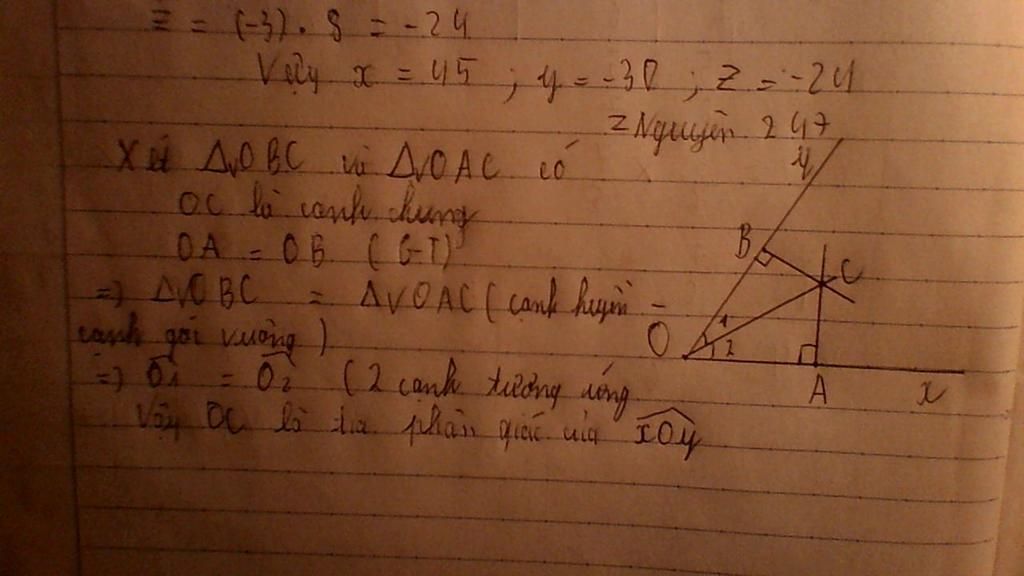 Z = (-3). 8 = -24
Vậy x = 45 ; y = -30 ; Z = -24
ZNguyên 247
Xét ΔvOBC và ΔvOAC có
OC là cạnh chung
OA = OB (G-T)
=) ΔvOBC = ΔvOAC (cạnh huyền -
cạnh gói vuông)
=) O1 = O2 (2 cạnh tương ứng
Vậy OC là tia phân giác của xOy
y
B
C
O
1
2
A
x